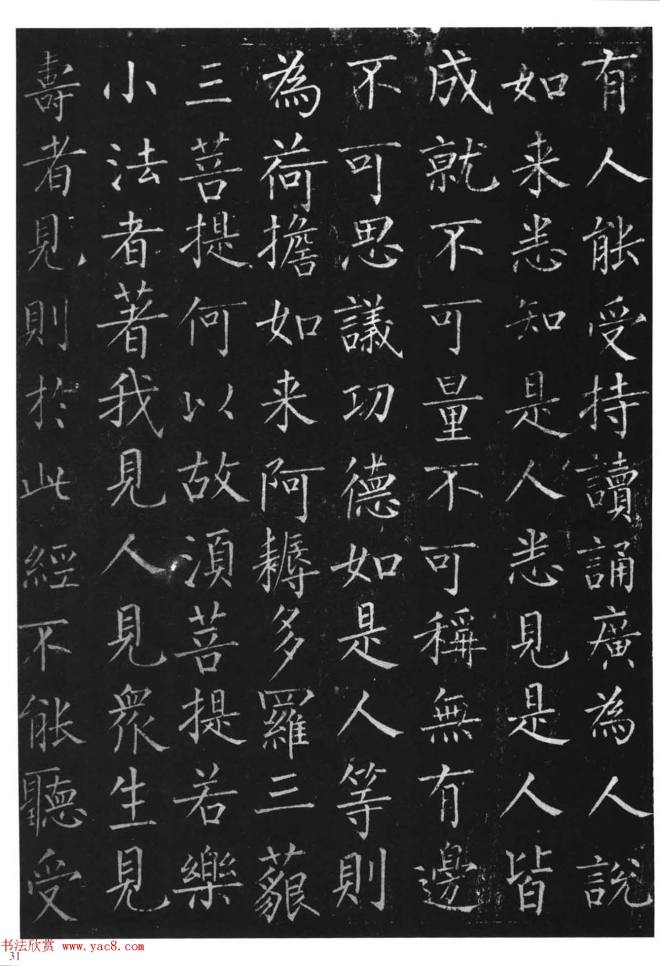 有人能受持讀誦廣為人說
如来悉知是人悉見是人皆
成就不可量不可稱無有邊
不可思議功德如是人等則
為荷擔如来阿耨多羅三藐
三菩提何以故須菩提若樂
小法者著我見人見衆生見
壽者見則於此經不能聽受
书法欣赏 www.yac8.com
31